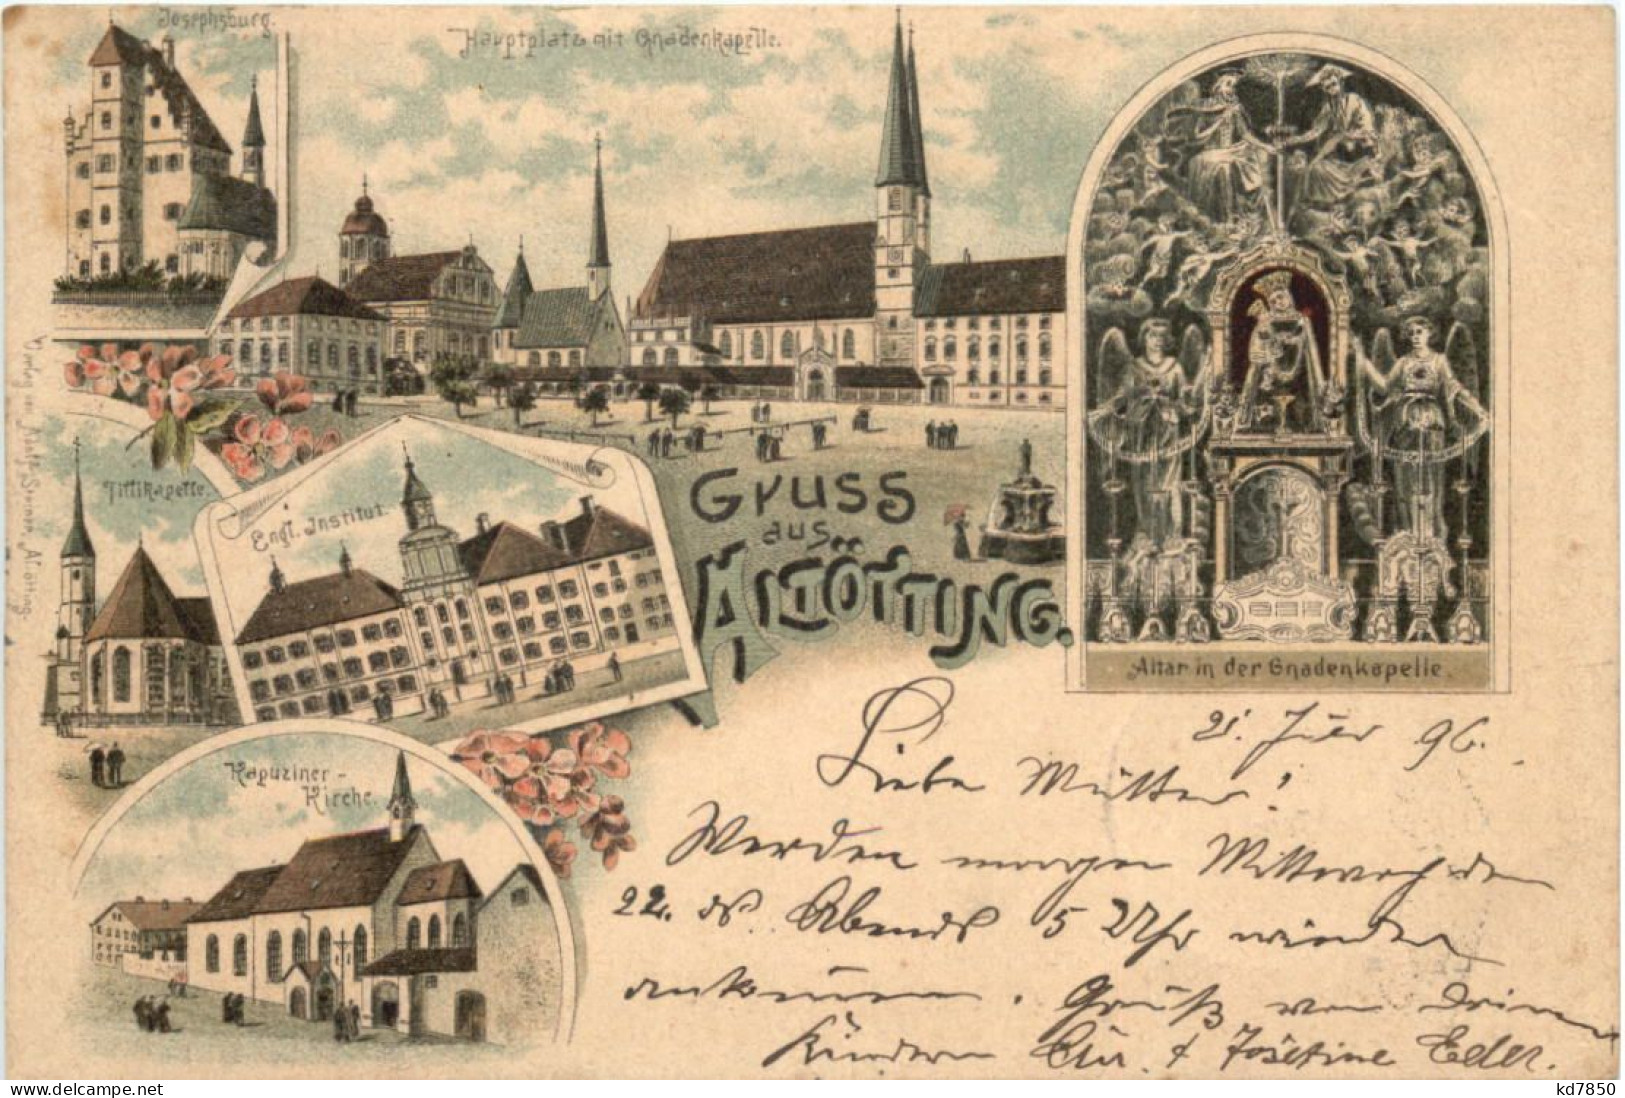 Josephsburg.
Hauptplatz mit Gnadenkapelle.
Tillikapelle.
Engl. Institut.
Kapuziner-
Kirche.
Gruss
aus
Altötting.
Altar in der Gnadenkapelle.
Verlag von
Altötting.
21. 96.
Liebe Mutter!
Werden morgen Mittwoch den
22. ds. Abends 5 Uhr wieder
ankommen. Gruß von Deinen
Kindern & Josefine Eder.
delcampe.net
kd7850